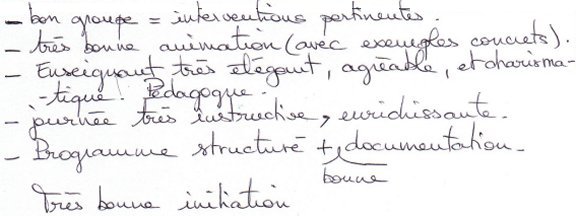 - bon groupe = interventions pertinentes.
- très bonne animation (avec exemples concrets).
- Enseignant très élégant, agréable, et charisma-
-tique. Pédagogue.
- journée très instructive, enrichissante.
- Programme structuré + documentation.
bonne
Très bonne initiation